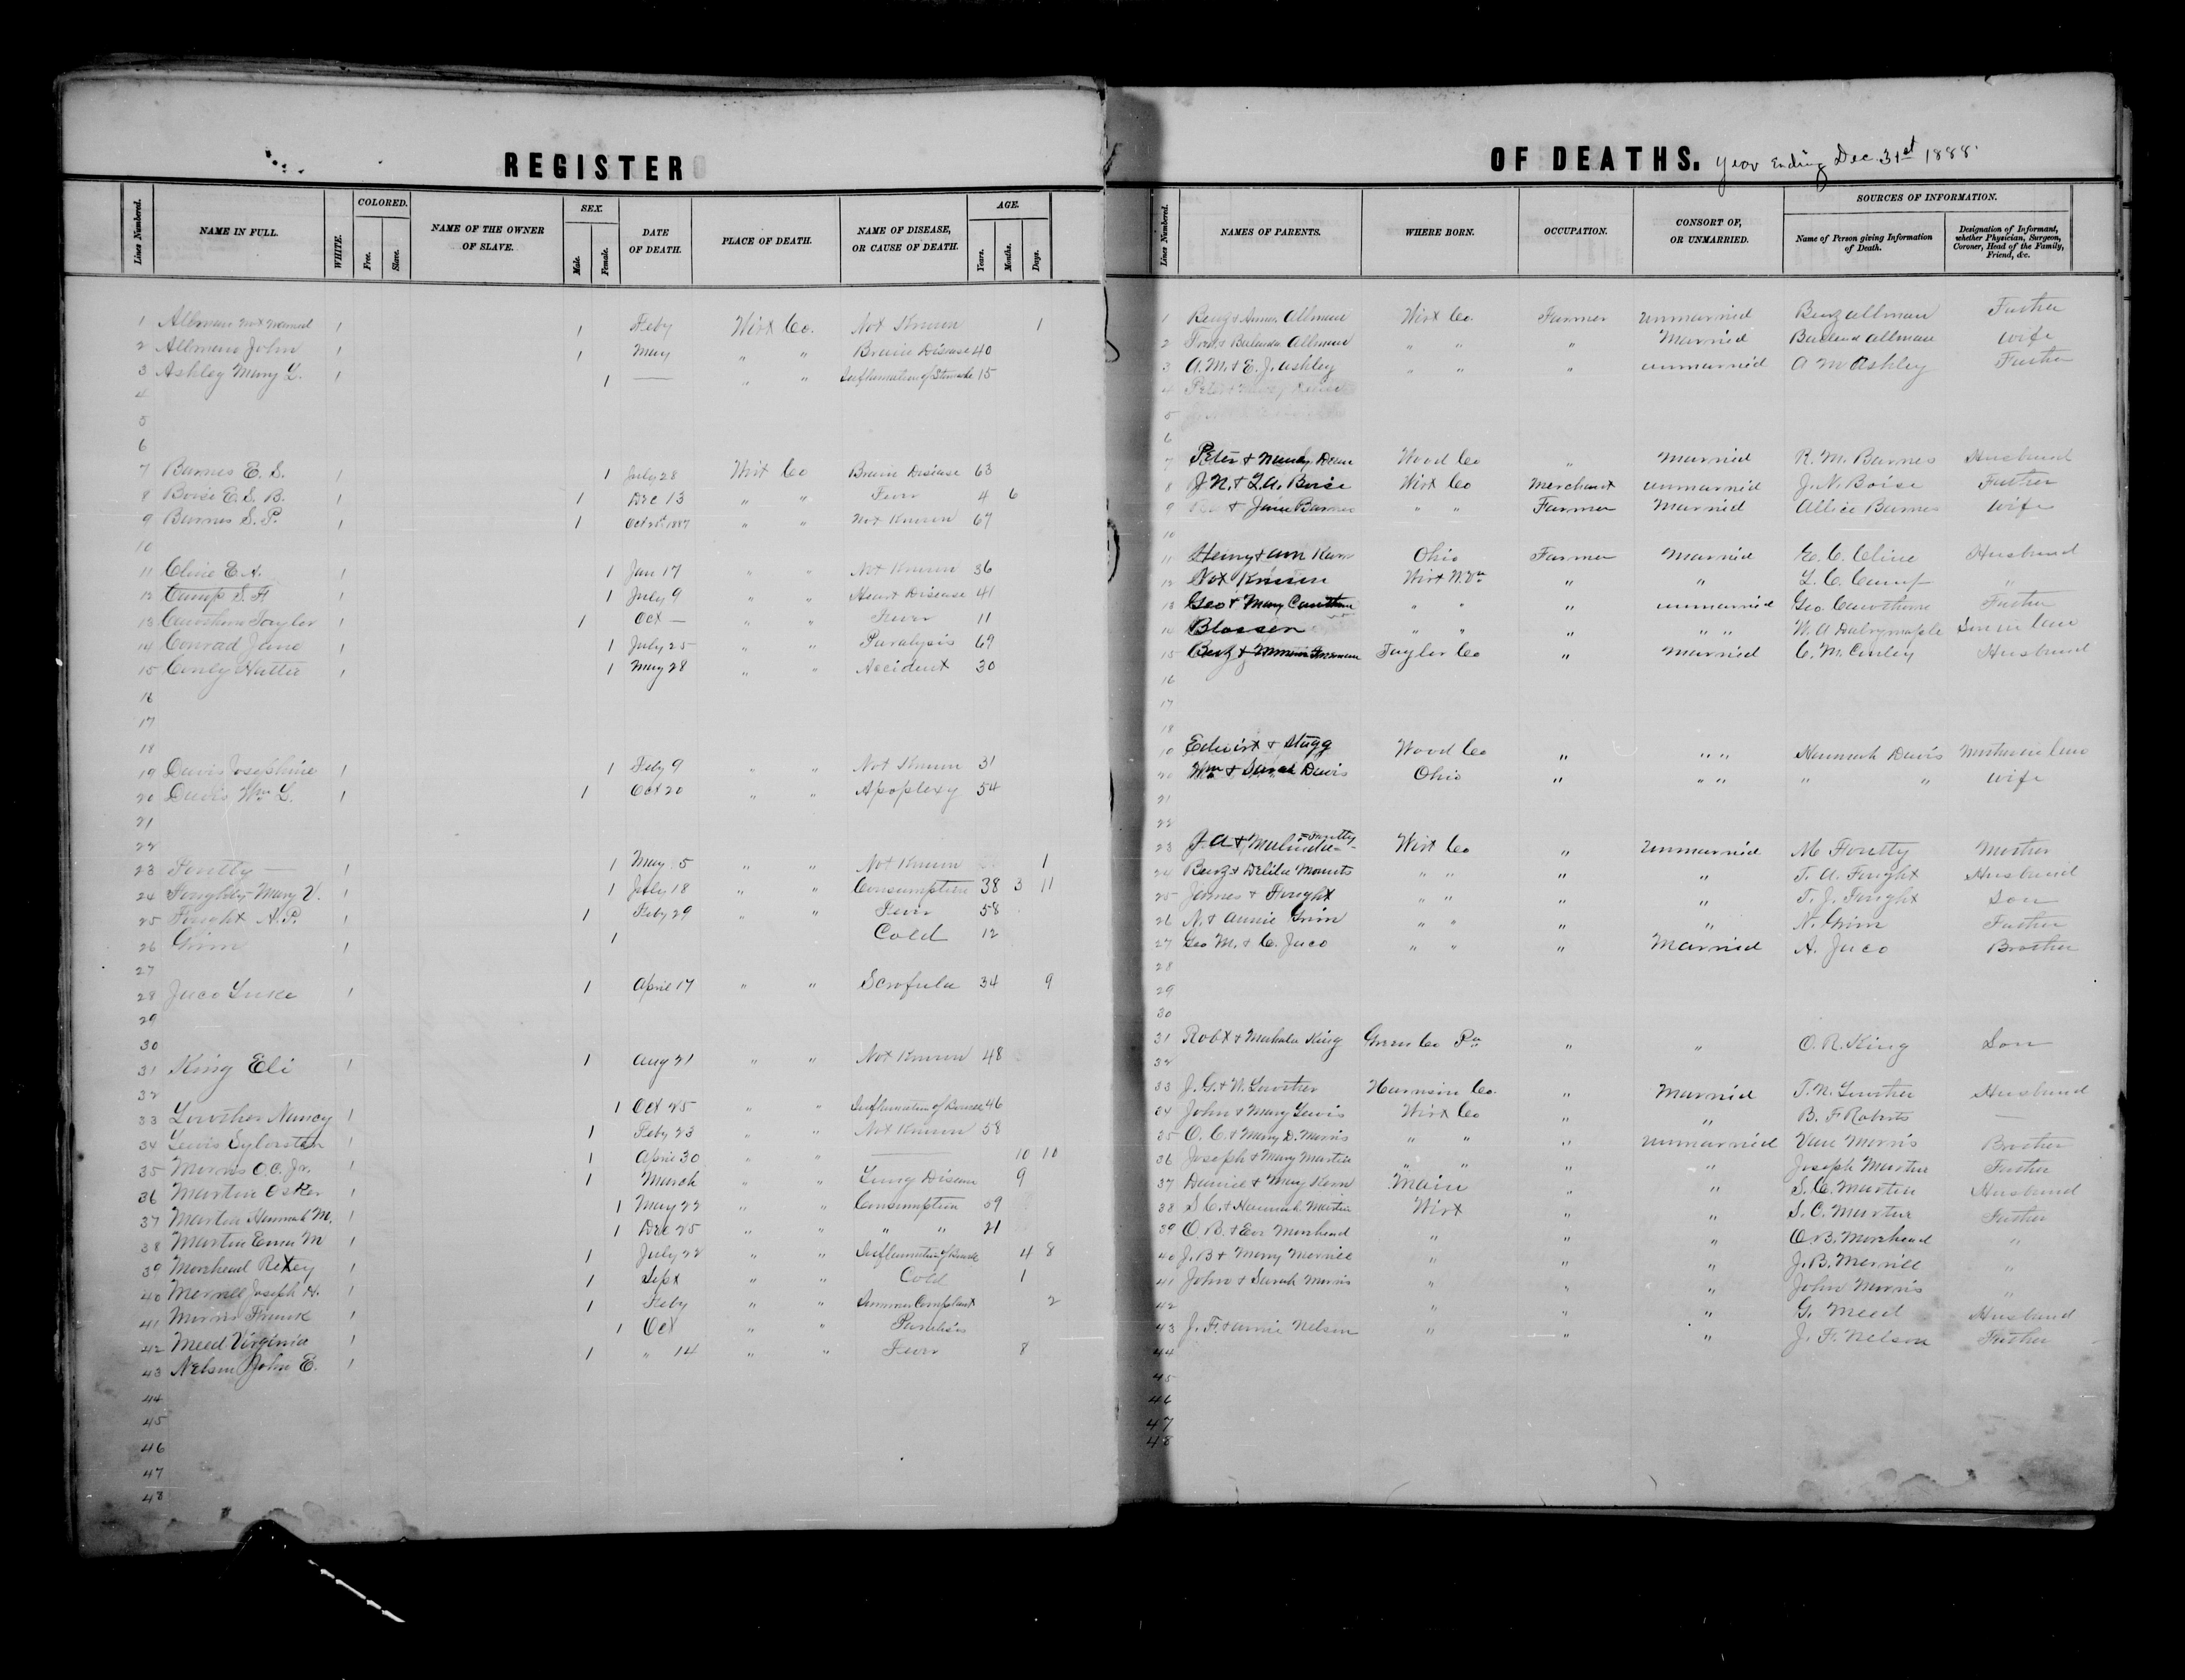 REGISTER
Lines Numbered. NAME IN FULL. WHITE. COLORED. Free. Slave. NAME OF THE OWNER OF SLAVE. SEX. Male. Female. DATE OF DEATH. PLACE OF DEATH. NAME OF DISEASE, OR CAUSE OF DEATH. AGE. Years. Months. Days.
1 Allman not named 1 1 Feby Wirt Co. Not Known 1
2 Allman John 1 1 May " " Brain Disease 40
3 Ashley Mary L. 1 1 — " " Inflamation of Stomache 15
4
5
6
7 Barnes E. S. 1 1 July 28 Wirt Co Brain Disease 63
8 Boise E. S. B. 1 1 Dec 13 " " Fever 4 6
9 Barnes S. P. 1 1 Oct 1887 " " Not Known 67
10
11 Cline E. A. 1 1 Jan 17 " " Not Known 36
12 Camp S. A 1 1 July 9 " " Heart Disease 41
13 Cawthorn Taylor 1 1 Oct — " " Fever 11
14 Conrad Jane 1 1 July 25 " " Paralysis 69
15 Conley Hattie 1 1 May 28 " " Accident 30
16
17
18
19 Davis Josephine 1 1 Feby 9 " " Not Known 31
20 Davis Wm L. 1 1 Oct 20 " " Apoplexy 54
21
22
23 Foutty — 1 1 May 5 " " Not Known 1
24 Fought Mary V. 1 1 July 18 " " Consumption 38 3 11
25 Fought N. P. 1 1 Feby 29 " " Fever 58
26 Grim 1 1 Cold 12
27
28 Juco Luke 1 1 April 17 " " Scrofula 34 9
29
30
31 King Eli 1 1 Aug 21 " " Not Known 48
32
33 Lowther Nancy 1 1 Oct 25 " " Inflamation of 46
34 Lewis Sylvester 1 1 Feby 23 " " Not Known 58
35 Morris O C. Jr. 1 1 April 30 " " — 10 10
36 Martin Osker 1 1 March " " Lung Disease 9
37 Martin Hannah M. 1 1 May 22 " " Consumption 59
38 Martin Emma M 1 1 Dec 25 " " " " 21
39 Morehead Retey 1 1 July 22 " " Inflamation of 4 8
40 Merrill Joseph H. 1 1 Sept " " Cold 1
41 Morris Frank 1 1 Feby " " Summer Complaint 2
42 Meed Virginia 1 1 Oct " " Paralisis
43 Nelson John E. 1 1 " 14 " " Fever 8
44
45
46
47
48
OF DEATHS. Year Ending Dec. 31st 1888
Lines Numbered. NAMES OF PARENTS. WHERE BORN. OCCUPATION. CONSORT OF, OR UNMARRIED. SOURCES OF INFORMATION. Name of Person giving Information of Death. Designation of Informant, whether Physician, Surgeon, Coroner, Head of the Family, Friend, &c.
1 Benj & Annie Allman Wirt Co. Farmer unmarried Benj allman Father
2 & Belinda Allman " " " Married Belinda allman wife
3 A. M. & E. J. Ashley " " " unmarried A M Ashley Father
4
5
6
7 Peter & Nancy Deem Wood Co " Married R. M. Barnes Husband
8 J. N. & L. A. Boise Wirt Co Merchant unmarried J. N. Boise Father
9 & Jane Barnes " " Farmer Married Allice Barnes wife
10
11 Henry & Ann Ohio Farmer Married E. C. Cline Husband
12 Not Known Wirt W. Va " " L. C. Camp "
13 Geo & Mary Cawthorn " " " unmarried Geo Cawthorne Father
14 Blosser " " " " " W. A Dalrymaple Son in law
15 Benj & Taylor Co " Married C. M. Conley Husband
16
17
18
19 & Stagg Wood Co " " " Hannah Davis Mother in law
20 Wm & Sarah Davis Ohio " " " " " wife
21
22
23 J. A & Malinda Foutty Wirt Co " Unmarried M Foutty Mother
24 Benj & Delila Mounts " " " " T. A. Fought Husband
25 James & Fought " " " " T. J. Fought Son
26 N. & Annie Grim " " " " N. Grim Father
27 Geo M. & C. Juco " " " Married A. Juco Brother
28
29
30
31 Robt & Mahala King Green Co Pa " " O. R. King Son
32
33 J. G. & N. Lowther Harrison Co. " Married T. N. Lowther Husband
34 John & Mary Lewis Wirt Co " " B. F Roberts —
35 O. C. & Mary D. Morris " " " unmarried Van Morris Brother
36 Joseph & Mary Martin " " " " Joseph Martin Father
37 Daniel & Mary Main " " S. C. Martin Husband
38 S C. & Hannah Martin Wirt " " S. C. Martin Father
39 O. B. & Eva Morehead " " " O. B. Morehead "
40 J. B & Mary Merrill " " " J. B. Merrill "
41 John & Sarah Morris " " " John Morris "
42 " " " G. Meed Husband
43 J. F. & Annie Nelson " " " J. F. Nelson Father
44
45
46
47
48